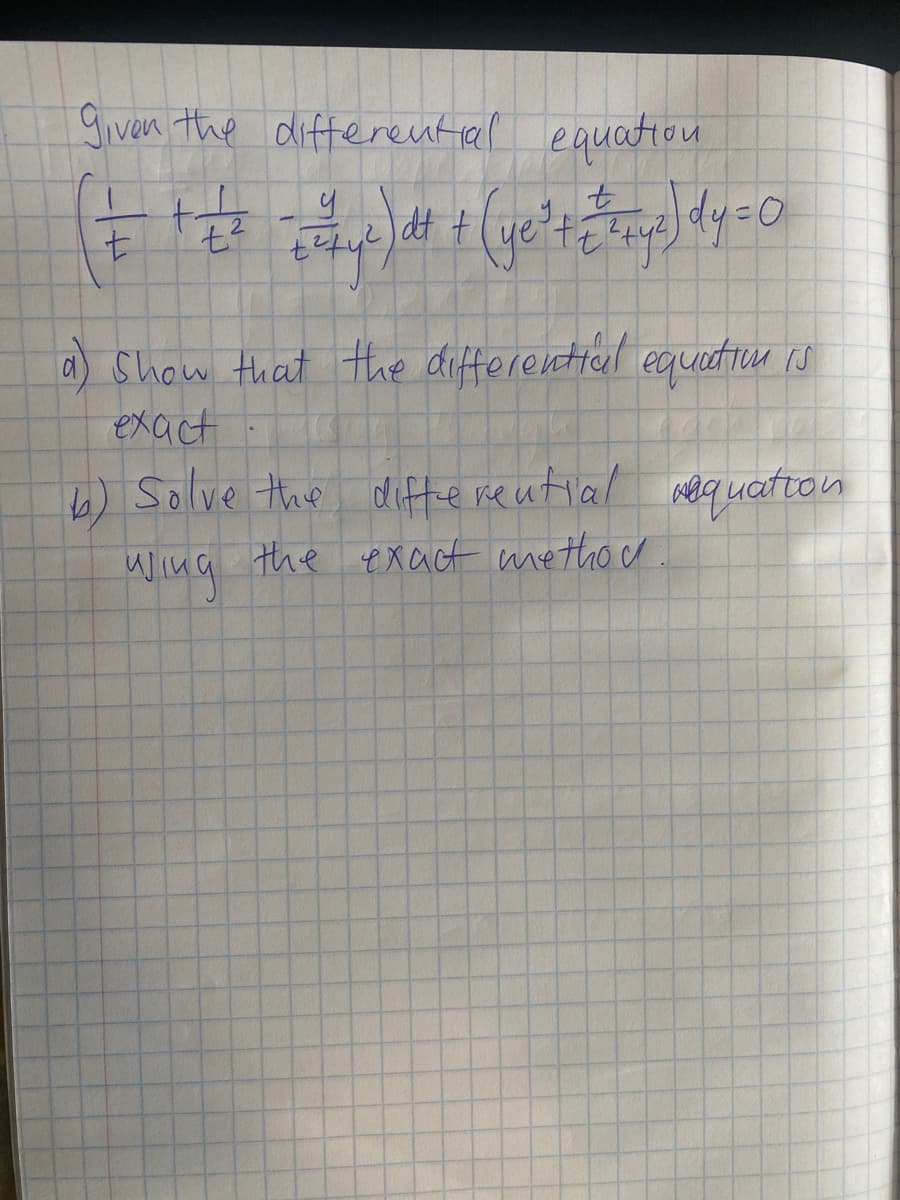 Given the differential equation
(1/t + 1/t² - y/(t²+y²)) dt + (ye^y + t/(t²+y²)) dy = 0
a) Show that the differential equation is
exact.
b) Solve the differential equation
using the exact method.